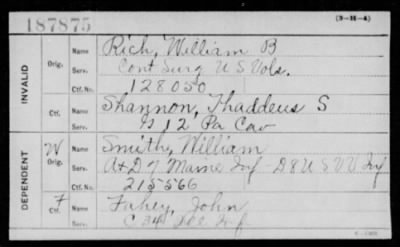 187875
(3-H-4)
INVALID
Orig.
Name Rich, William B
Serv. Cont Surg U S Vols.
Ctf. No. 128050
Ctf.
Name Shannon, Thaddeus S
Serv. G 12 Pa Cav
DEPENDENT
W
Orig.
Name Smith, William
Serv. A & D 7 Maine Inf - D 8 U S V V Inf
Ctf. No. 215566
F
Ctf.
Name Fahey, John
Serv. C 34 Ill Inf